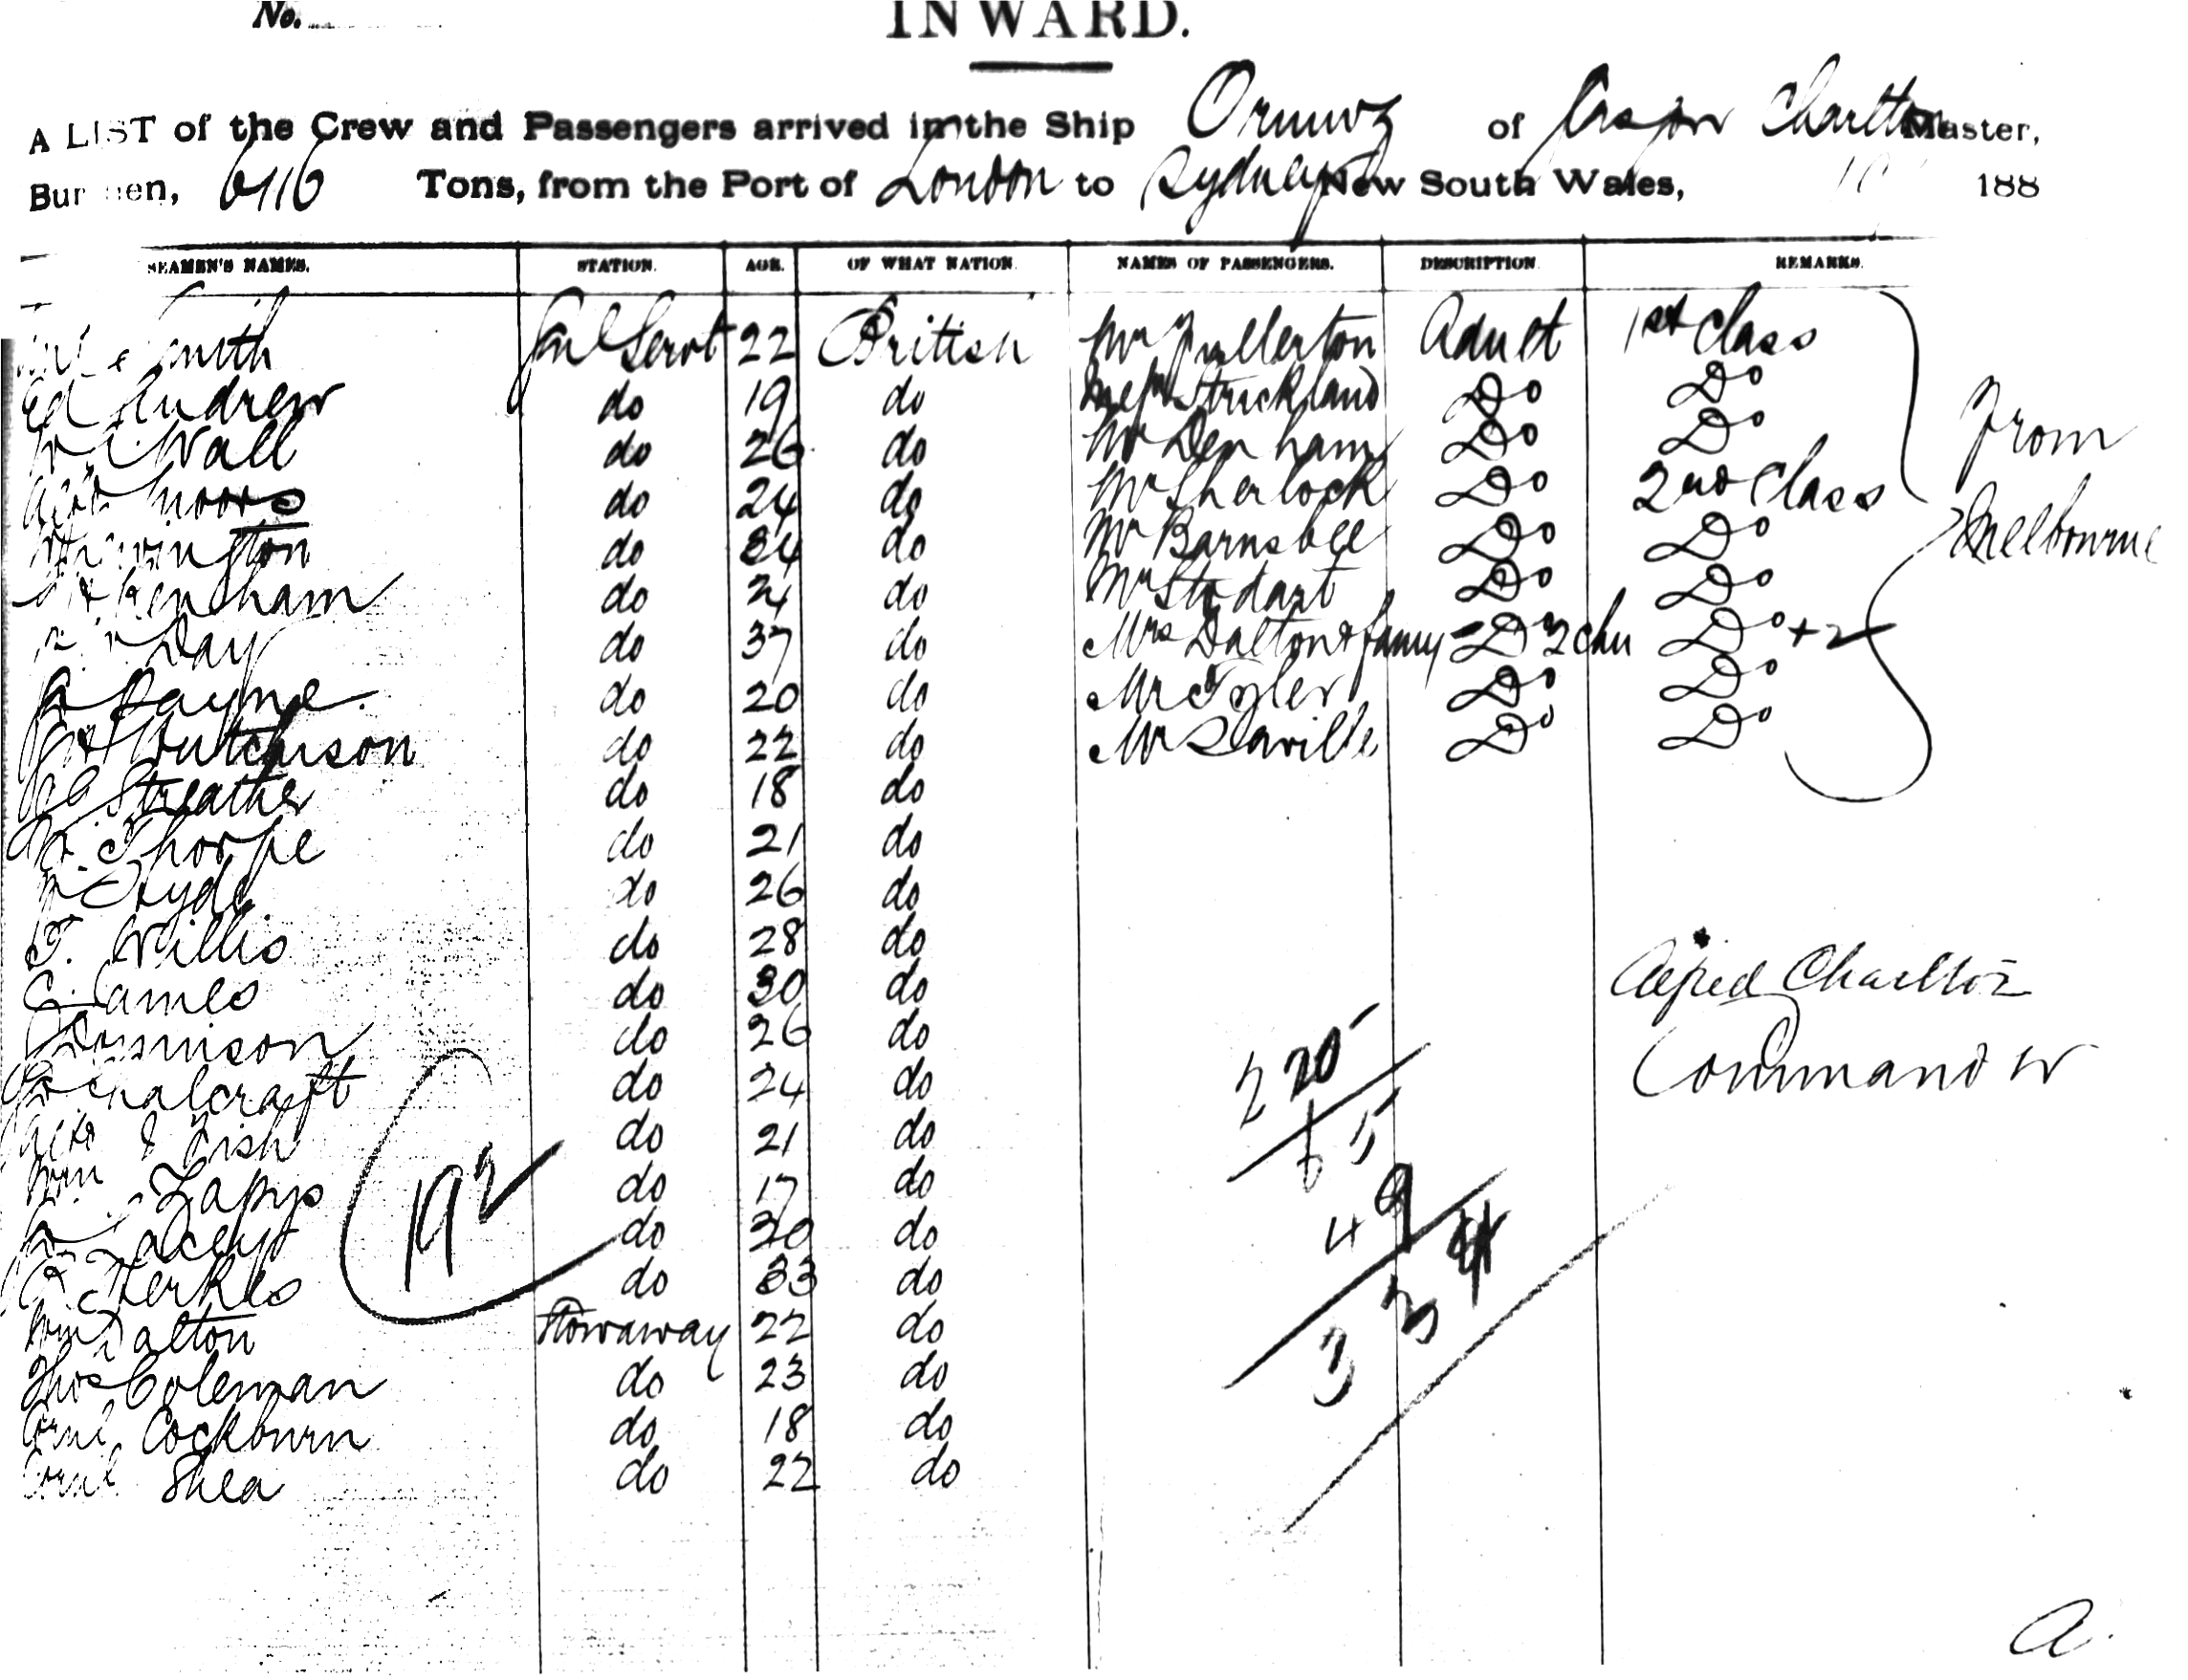 No.
INWARD.
A LIST of the Crew and Passengers arrived in the Ship Ormuz of Charlton Master,
Burthen, 6116 Tons, from the Port of London to Sydney New South Wales, 188
SEAMEN'S NAMES. STATION. AGE. OF WHAT NATION NAMES OF PASSENGERS. DESCRIPTION REMARKS.
Smith Genl Servt 22 British Mr Fullerton Adult 1st Class
Ed Andrew do 19 do Strickland Do Do
Wall do 26 do Mr Denham Do Do
Moors do 24 do Mr Sherlock Do 2nd Class
do 34 do Mr Barnsbee Do Do
do do Mr Stodart Do Do
Day do 37 do Mrs Dalton & famy Do 2 chn Do + 2
Payne do 20 do Mr Tyler Do Do
Hutchison do 22 do Mr Saville Do Do
From
Melbourne
Streather do 18 do
Thorpe do 21 do
Hyde do 26 do
T. Willis do 28 do
James do 30 do
do 26 do
Chalcraft do 24 do
Fish do 21 do
Wm do 17 do
Lacey do 30 do
Herkes do 33 do
Wm Dalton Stowaway 22 do
Thos Coleman do 23 do
Cornl Cockburn do 18 do
Cornl Shea do 22 do
192
Alfred Charlton
Commander
220
49
334
a.